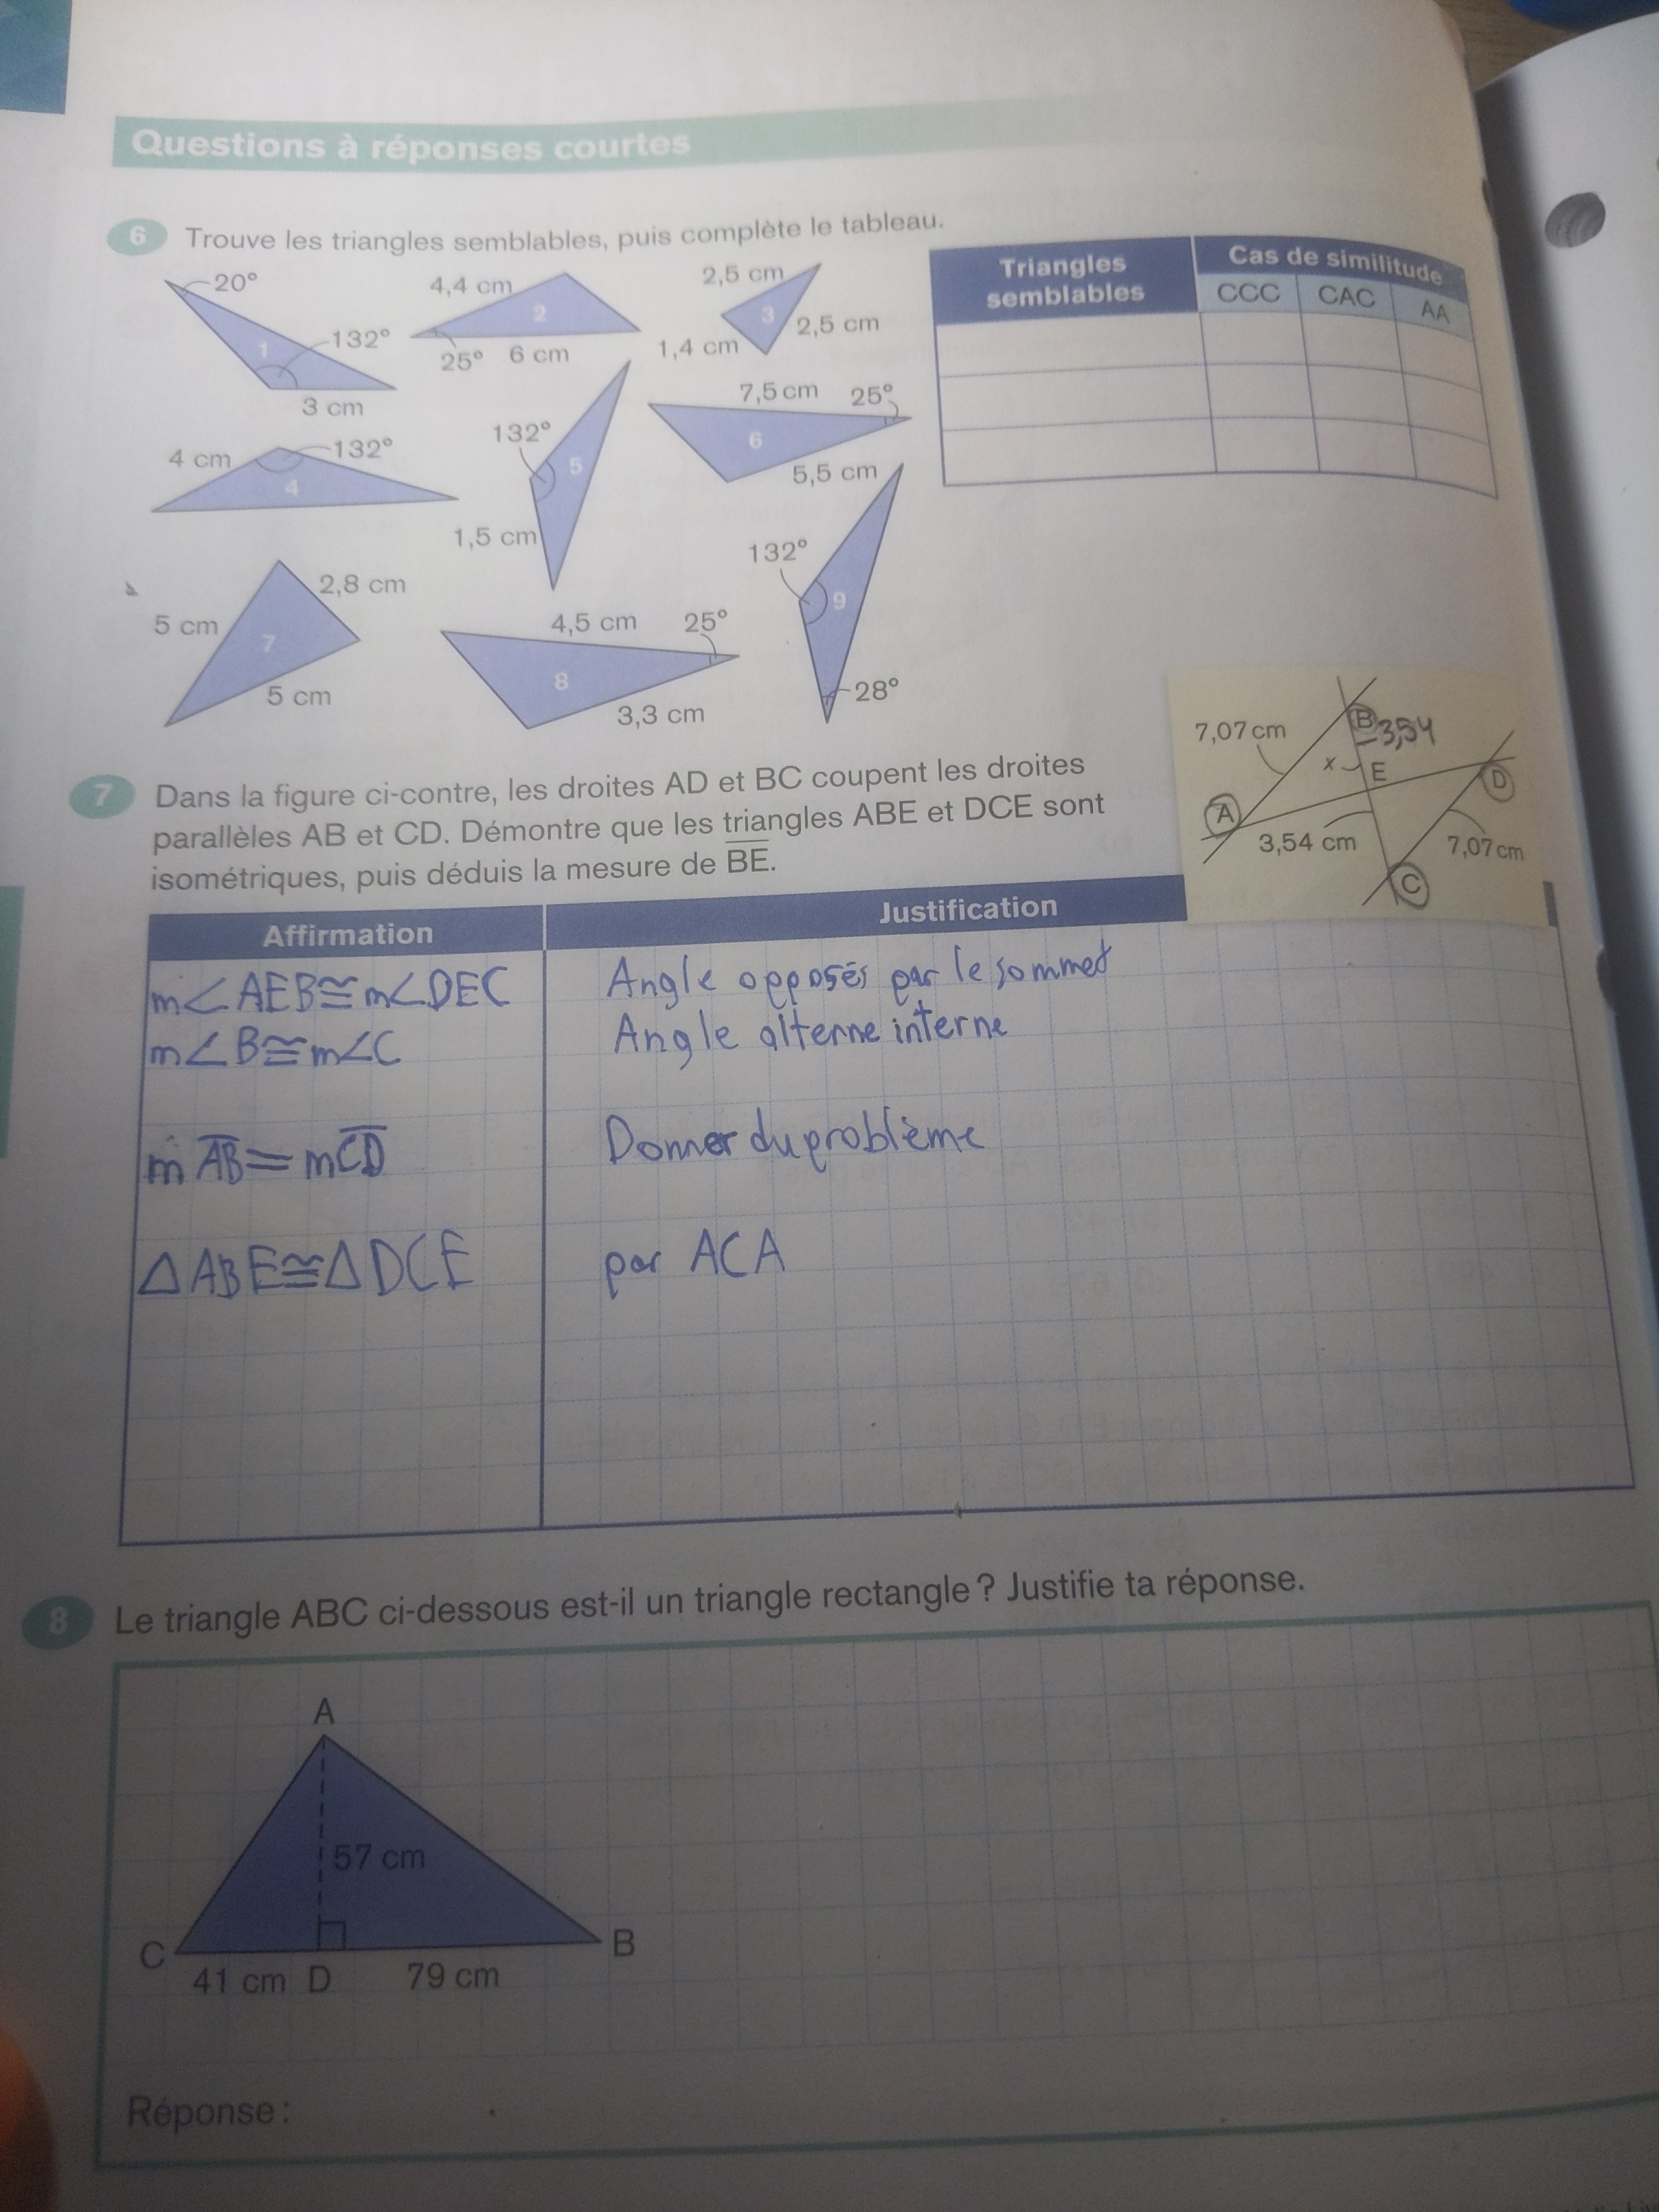 Questions à réponses courtes
6 Trouve les triangles semblables, puis complète le tableau.
Triangles semblables
Cas de similitude
CCC CAC AA
20°
132°
1
3 cm
4,4 cm
2
25° 6 cm
2,5 cm
3
2,5 cm
1,4 cm
4 cm
132°
4
132°
5
1,5 cm
7,5 cm 25°
6
5,5 cm
5 cm
2,8 cm
7
5 cm
4,5 cm 25°
8
3,3 cm
132°
9
28°
7 Dans la figure ci-contre, les droites AD et BC coupent les droites
parallèles AB et CD. Démontre que les triangles ABE et DCE sont
isométriques, puis déduis la mesure de B̅E̅.
7,07 cm
B
3,54
x
E
D
A
3,54 cm
7,07 cm
C
Affirmation Justification
m∠AEB≅m∠DEC Angle opposés par le sommet
m∠B≅m∠C Angle alterne interne
m A̅B̅=mC̅D̅ Donner du problème
△ABE≅△DCE par ACA
8 Le triangle ABC ci-dessous est-il un triangle rectangle ? Justifie ta réponse.
A
57 cm
C
B
41 cm D 79 cm
Réponse :